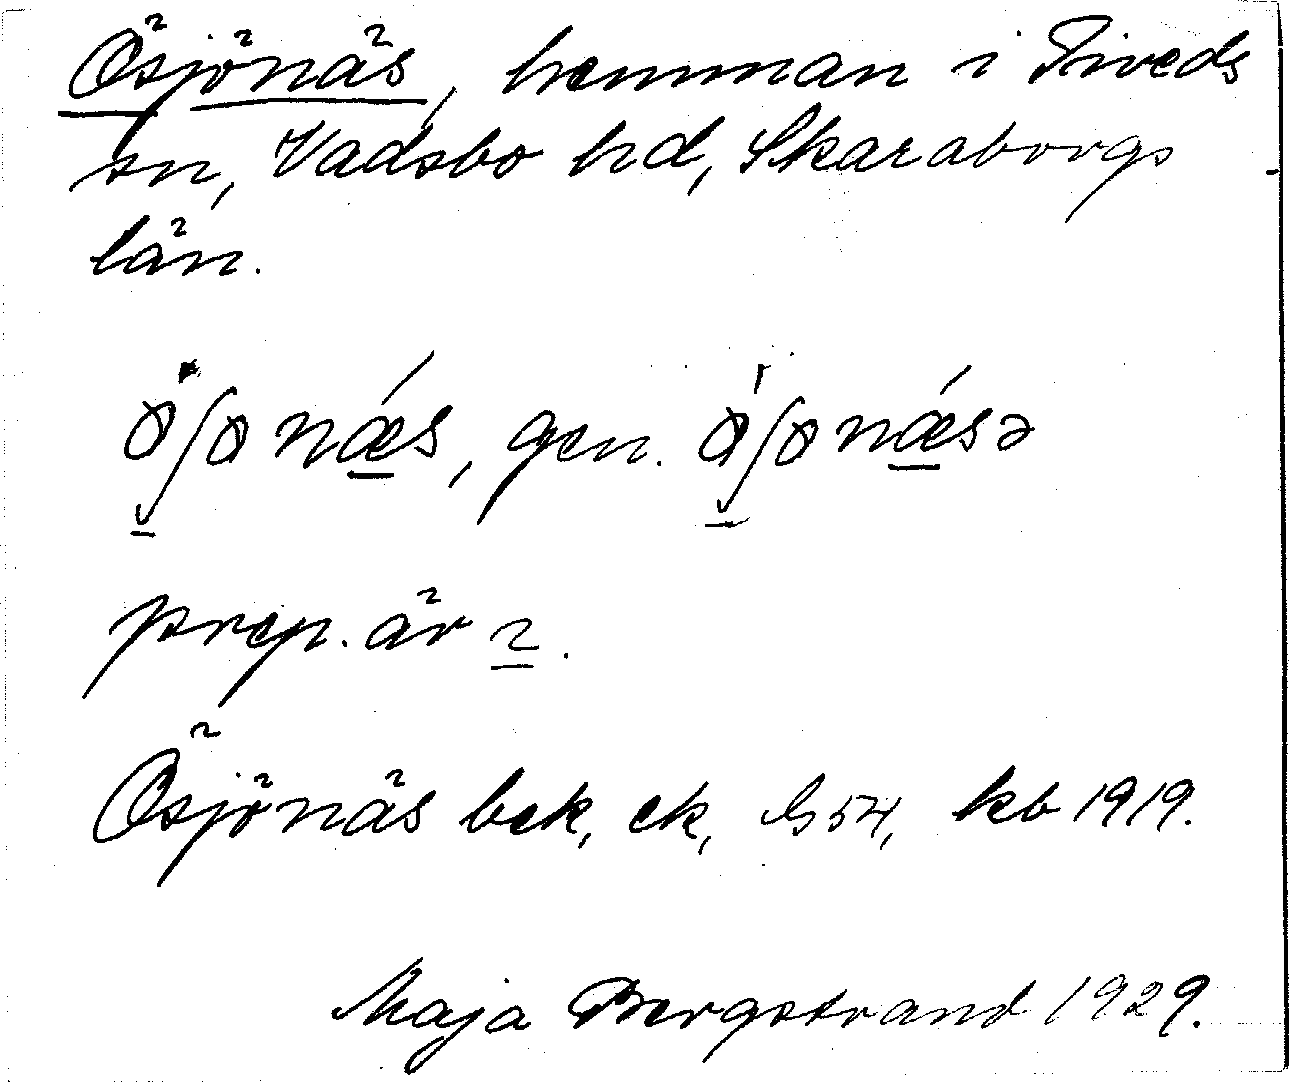 Ösjönäs, hemman i Tiveds
sn, Vadsbo hd, Skaraborgs
län.
gen.
prep. är
Ösjönäs bek, ek, G 54, kb 1919.
Maja Bergstrand 1929.